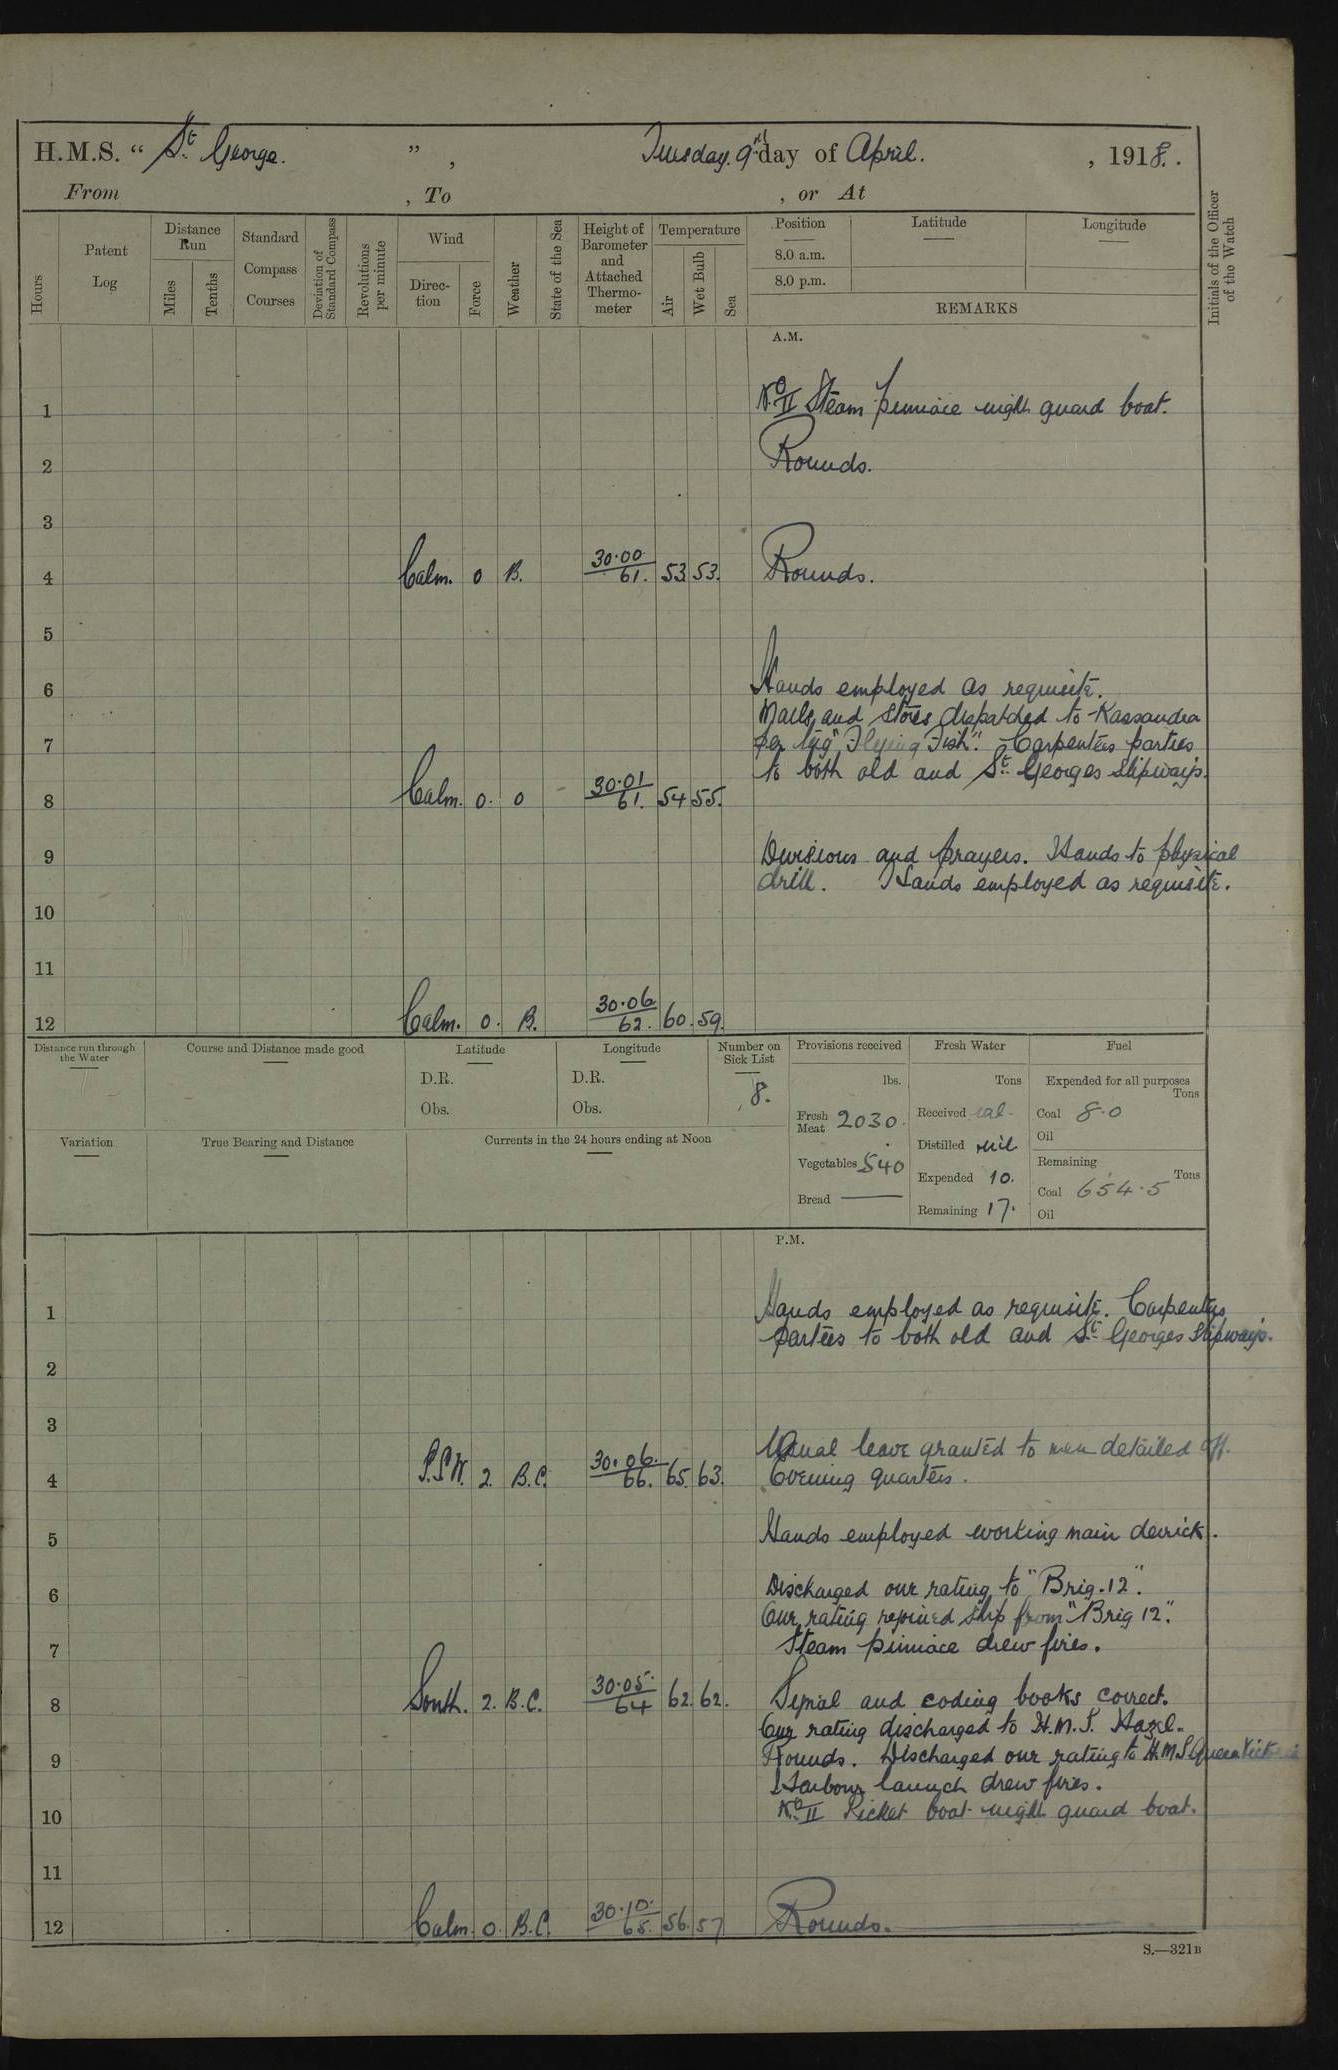 H.M.S. “ St. George. ” , Tuesday. 9th day of April. , 1918.
From , To , or At
Hours
Patent Log
Distance Run
Miles
Tenths
Standard Compass Courses
Deviation of Standard Compass
Revolutions per minute
Wind
Direction
Force
Weather
State of the Sea
Height of Barometer and Attached Thermometer
Temperature
Air
Wet Bulb
Sea
Position
8.0 a.m.
8.0 p.m.
Latitude
Longitude
REMARKS
Initials of the Officer of the Watch
A.M.
1 No. II Steam pinnace night guard boat.
2 Rounds.
3
4 Calm. 0 B. 30.00 61. 53. 53. Rounds.
5
6 Hands employed as requisite.
Mails and stores dispatched to Kassandra
7 per tug "Flying Fish". Carpenters parties
to both old and St. Georges slipways.
8 Calm. 0. 0 30.01 61. 54 55.
9 Divisions and prayers. Hands to physical
drill. Hands employed as requisite.
10
11
12 Calm. 0. B. 30.06 62. 60. 59.
Distance run through the Water
Course and Distance made good
Latitude
D.R.
Obs.
Longitude
D.R.
Obs.
Number on Sick List
8.
Provisions received
lbs.
Fresh Meat 2030.
Vegetables 540
Bread —
Fresh Water
Tons
Received
Distilled nil
Expended 10.
Remaining 17.
Fuel
Expended for all purposes
Tons
Coal 8.0
Oil
Remaining
Tons
Coal 654.5
Oil
Variation
True Bearing and Distance
Currents in the 24 hours ending at Noon
P.M.
1 Hands employed as requisite. Carpenters
parties to both old and St. Georges slipways.
2
3
Usual leave granted to men detailed off.
4 S.S.W. 2. B.C. 30.06. 66. 65. 63. Evening quarters.
5 Hands employed working main derrick.
6 Discharged one rating to "Brig. 12".
One rating rejoined ship from "Brig 12".
7 Steam pinnace drew fires.
8 South. 2. B.C. 30.05. 64 62. 62. Signal and coding books correct.
One rating discharged to H.M.S. Hazel.
9 Rounds. Discharged one rating to H.M.S Queen Victoria
Harbour launch drew fires.
10 No. II Picket boat night guard boat.
11
12 Calm. 0. B.C. 30.10. 65. 56. 57 Rounds.
S.—321B